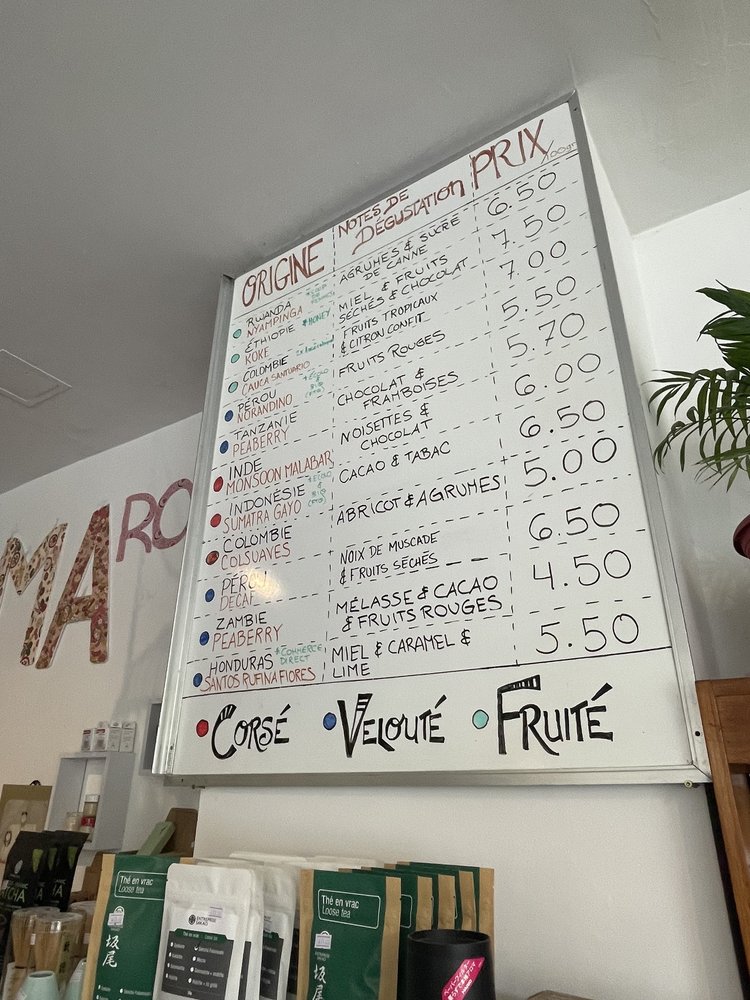 ORIGINE
NOTES DE
DÉGUSTATION
PRIX
/100gr
RWANDA
NYAMPINGA
AGRUMES & SUCRE
DE CANNE
6.50
ÉTHIOPIE
*HONEY
KOKE
MIEL & FRUITS
SÉCHÉS & CHOCOLAT
7.50
COLOMBIE
CAUCA SANTUARIO
FRUITS TROPICAUX
& CITRON CONFIT
7.00
PÉROU
NORANDINO
FRUITS ROUGES
5.50
TANZANIE
PEABERRY
CHOCOLAT &
FRAMBOISES
5.70
INDE
MONSOON MALABAR
NOISETTES &
CHOCOLAT
6.00
INDONÉSIE
SUMATRA GAYO
CACAO & TABAC
6.50
COLOMBIE
COLSUAVES
ABRICOT & AGRUMES
5.00
PÉROU
DECAF
NOIX DE MUSCADE
& FRUITS SÉCHÉS
6.50
ZAMBIE
PEABERRY
MÉLASSE & CACAO
& FRUITS ROUGES
4.50
HONDURAS
*COMMERCE
DIRECT
SANTOS RUFINA FIORES
MIEL & CARAMEL &
LIME
5.50
CORSÉ
VELOUTÉ
FRUITÉ
MA
RO
Thé en vrac
Loose tea
坂尾
Thé en vrac
Loose tea
坂尾